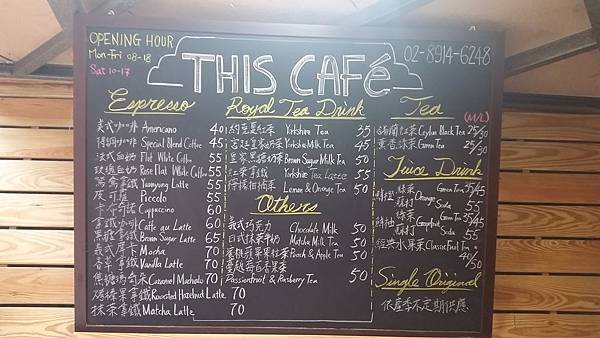 OPENING HOUR
Mon-Fri 08-18
Sat 10-17
THIS CAFé
02-8914-6248
Espresso
美式咖啡 Americano 40
特調咖啡 Special Blend Coffee 45
法式白奶 Flat White Coffee 55
玫瑰白奶 Rose Flat White Coffee 55
鴛鴦拿鐵 Yuanyang Latte 55
皮可羅 Piccolo 55
卡布奇諾 Cappuccino 60
拿鐵咖啡 Caffe que Latte 60
黑糖拿鐵 Brown Sugar Latte 65
義式摩卡 Mocha 70
香草拿鐵 Vanilla Latte 70
焦糖瑪奇朵 Caramel Machiato 70
榛果拿鐵 Roasted Hazelnut Latte 70
抹茶拿鐵 Matcha Latte 70
Royal Tea Drink
約克夏紅茶 Yorkshire Tea 35
皇家奶茶 Yorkshire Milk Tea 45
皇家黑糖奶茶 Brown Sugar Milk Tea 50
紅茶拿鐵 Yorkshire Tea Latee 55
檸檬柑橘茶 Lemon & Orange Tea 50
Others
義式巧克力 Chocolate Milk 50
日式抹茶牛奶 Matcha Milk Tea 50
蜜桃蘋果紅茶 Peach & Apple Tea 50
蔓越莓百香果茶
Passionfruit & Raspberry Tea 50
Tea (M/L)
錫蘭紅茶 Ceylon Black Tea 25/30
綠茶 Green Tea 25/30
Juice Drink
綠茶 Green Tea 35/45
柳橙 Orange
蘇打 Soda 55
綠茶 Green Tea 35/45
葡柚 Grapefruit
蘇打 Soda 55
經典水果茶 Classic Fruit Tea
40/50
Single Original
依產季不定期供應